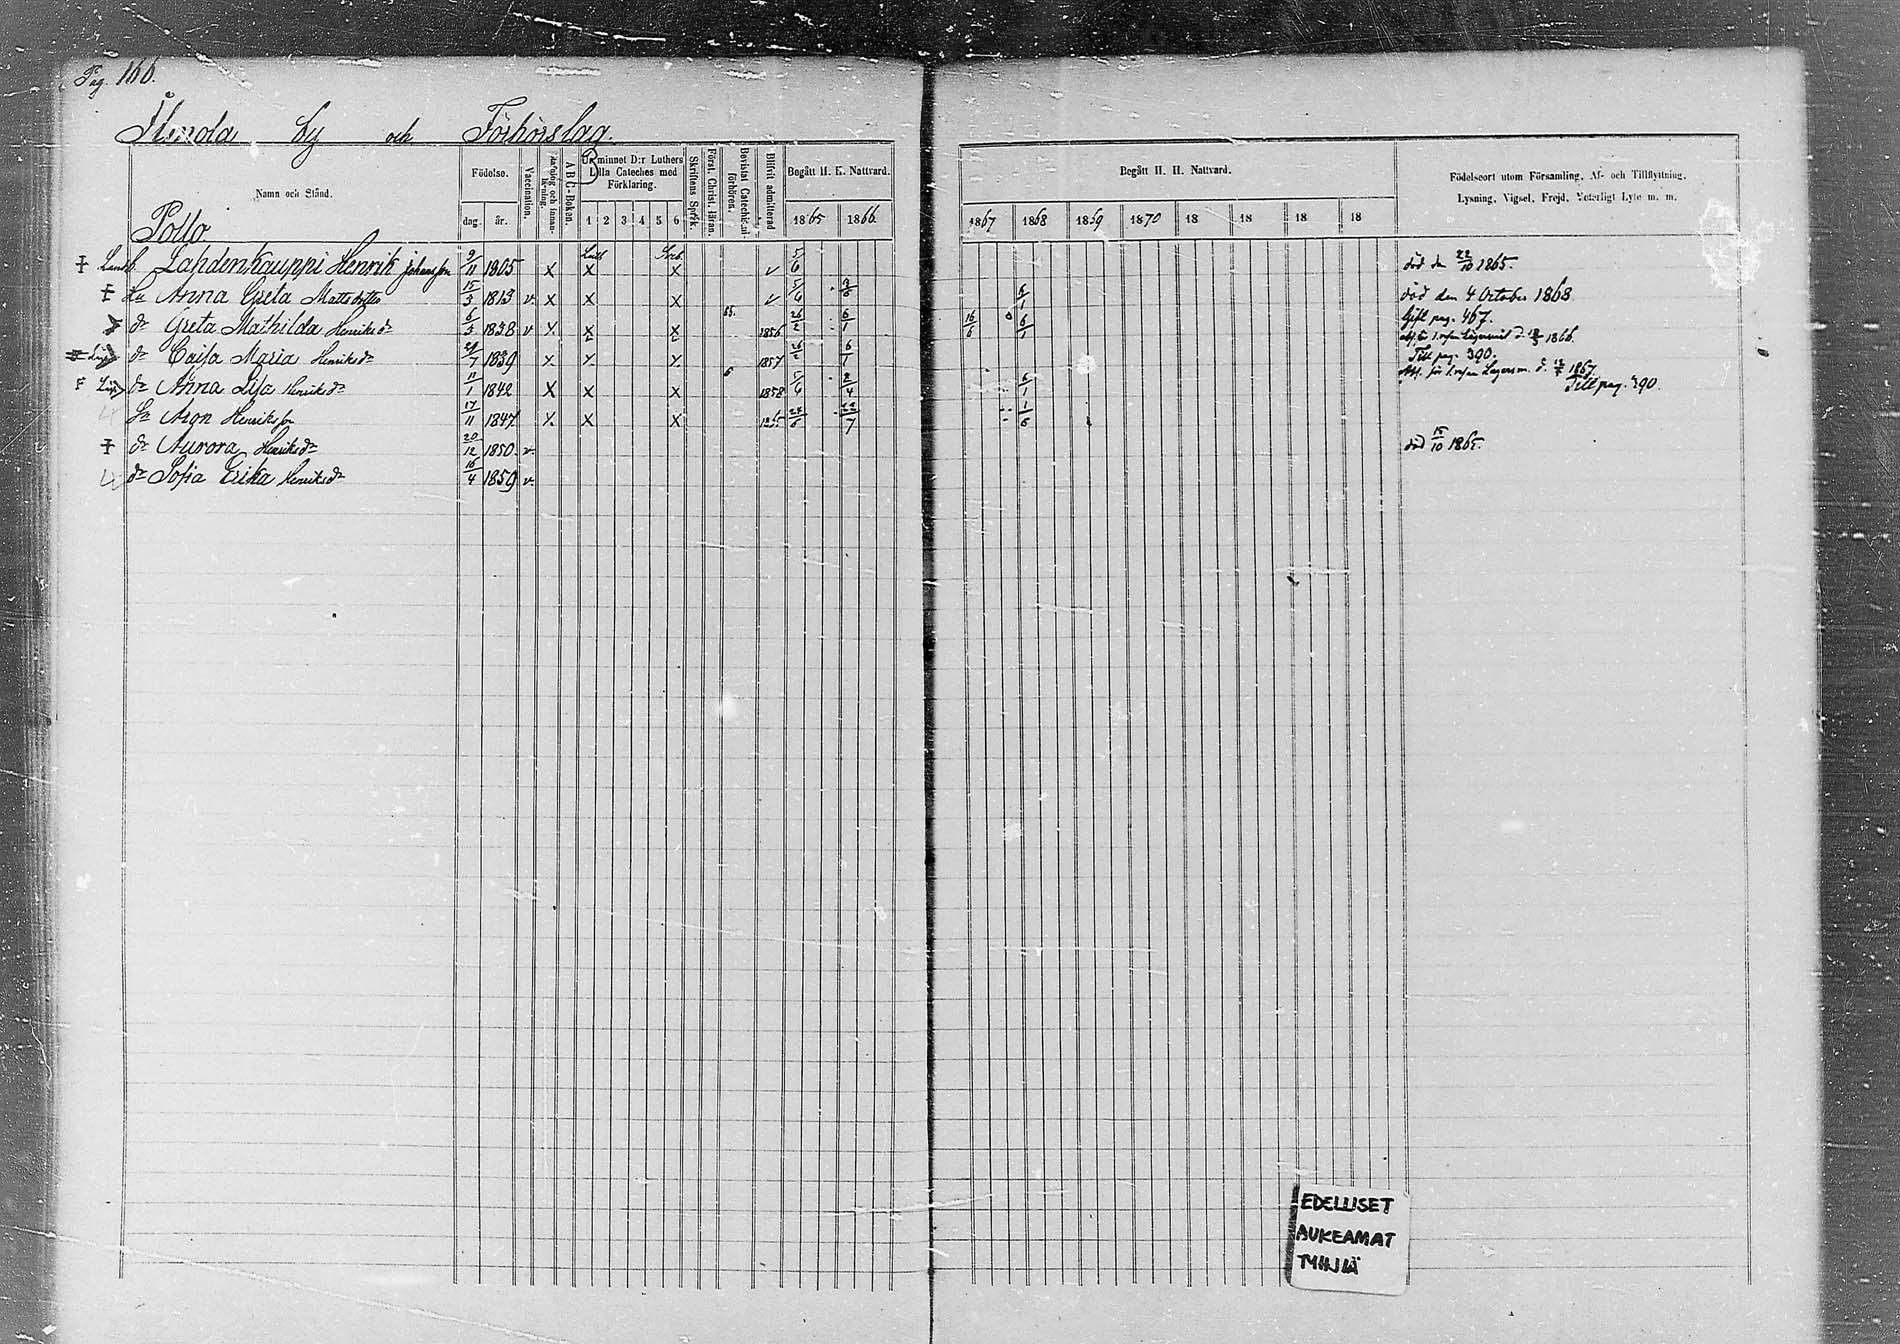 Pag. 166.
by och Förhörslag.
Namn och Stånd.
Födelse.
dag. år.
Vaccination.
A B C-Boken.
Ur minnet D:r Luthers Lilla Cateches med Förklaring.
1 2 3 4 5 6
Skriftens Språk.
Först. Christ. läran.
Bevistat Catechismi-förhören.
Blifvit admitterad
Begått H. H. Nattvard.
1865 1866
Begått H. H. Nattvard.
1867 1868 1869 1870 18 18 18 18
Födelseort utom Församling, Af- och Tillflyttning,
Lysning, Vigsel, Frejd, Veterligt Lyte m. m.
Pollo.
Lahdenkauppi Henrik Johansson 9/11 1805 X X X v 5/6 död den 22/10 1865.
Hu Anna Greta Mattsdotter 15/3 1813 v X X X v 5/6 död den 4 October 1868
dr Greta Mathilda Henriksdr 6/3 1838 v X X X 65. 1856 26/2 6/1 16/6 6/1 Gift pag. 467.
1866.
dr Caisa Maria Henriksdr 29/7 1839 X X X 1857 26/2 6/1 Till pag. 390.
1867
dr Anna Lisa Henriksdr 11/1 1842 X X X 6 1858 5/6 2/4 6/1 Till pag. 390.
Sn Aron Henriksson 17/11 1847 X X X 1865 1/6
dr Aurora Henriksdr 20/12 1850 v. död 15/10 1865.
dr Sofia Erika Henriksdr 16/4 1859 v.
EDELLISET
AUKEAMAT
TYHJIÄ